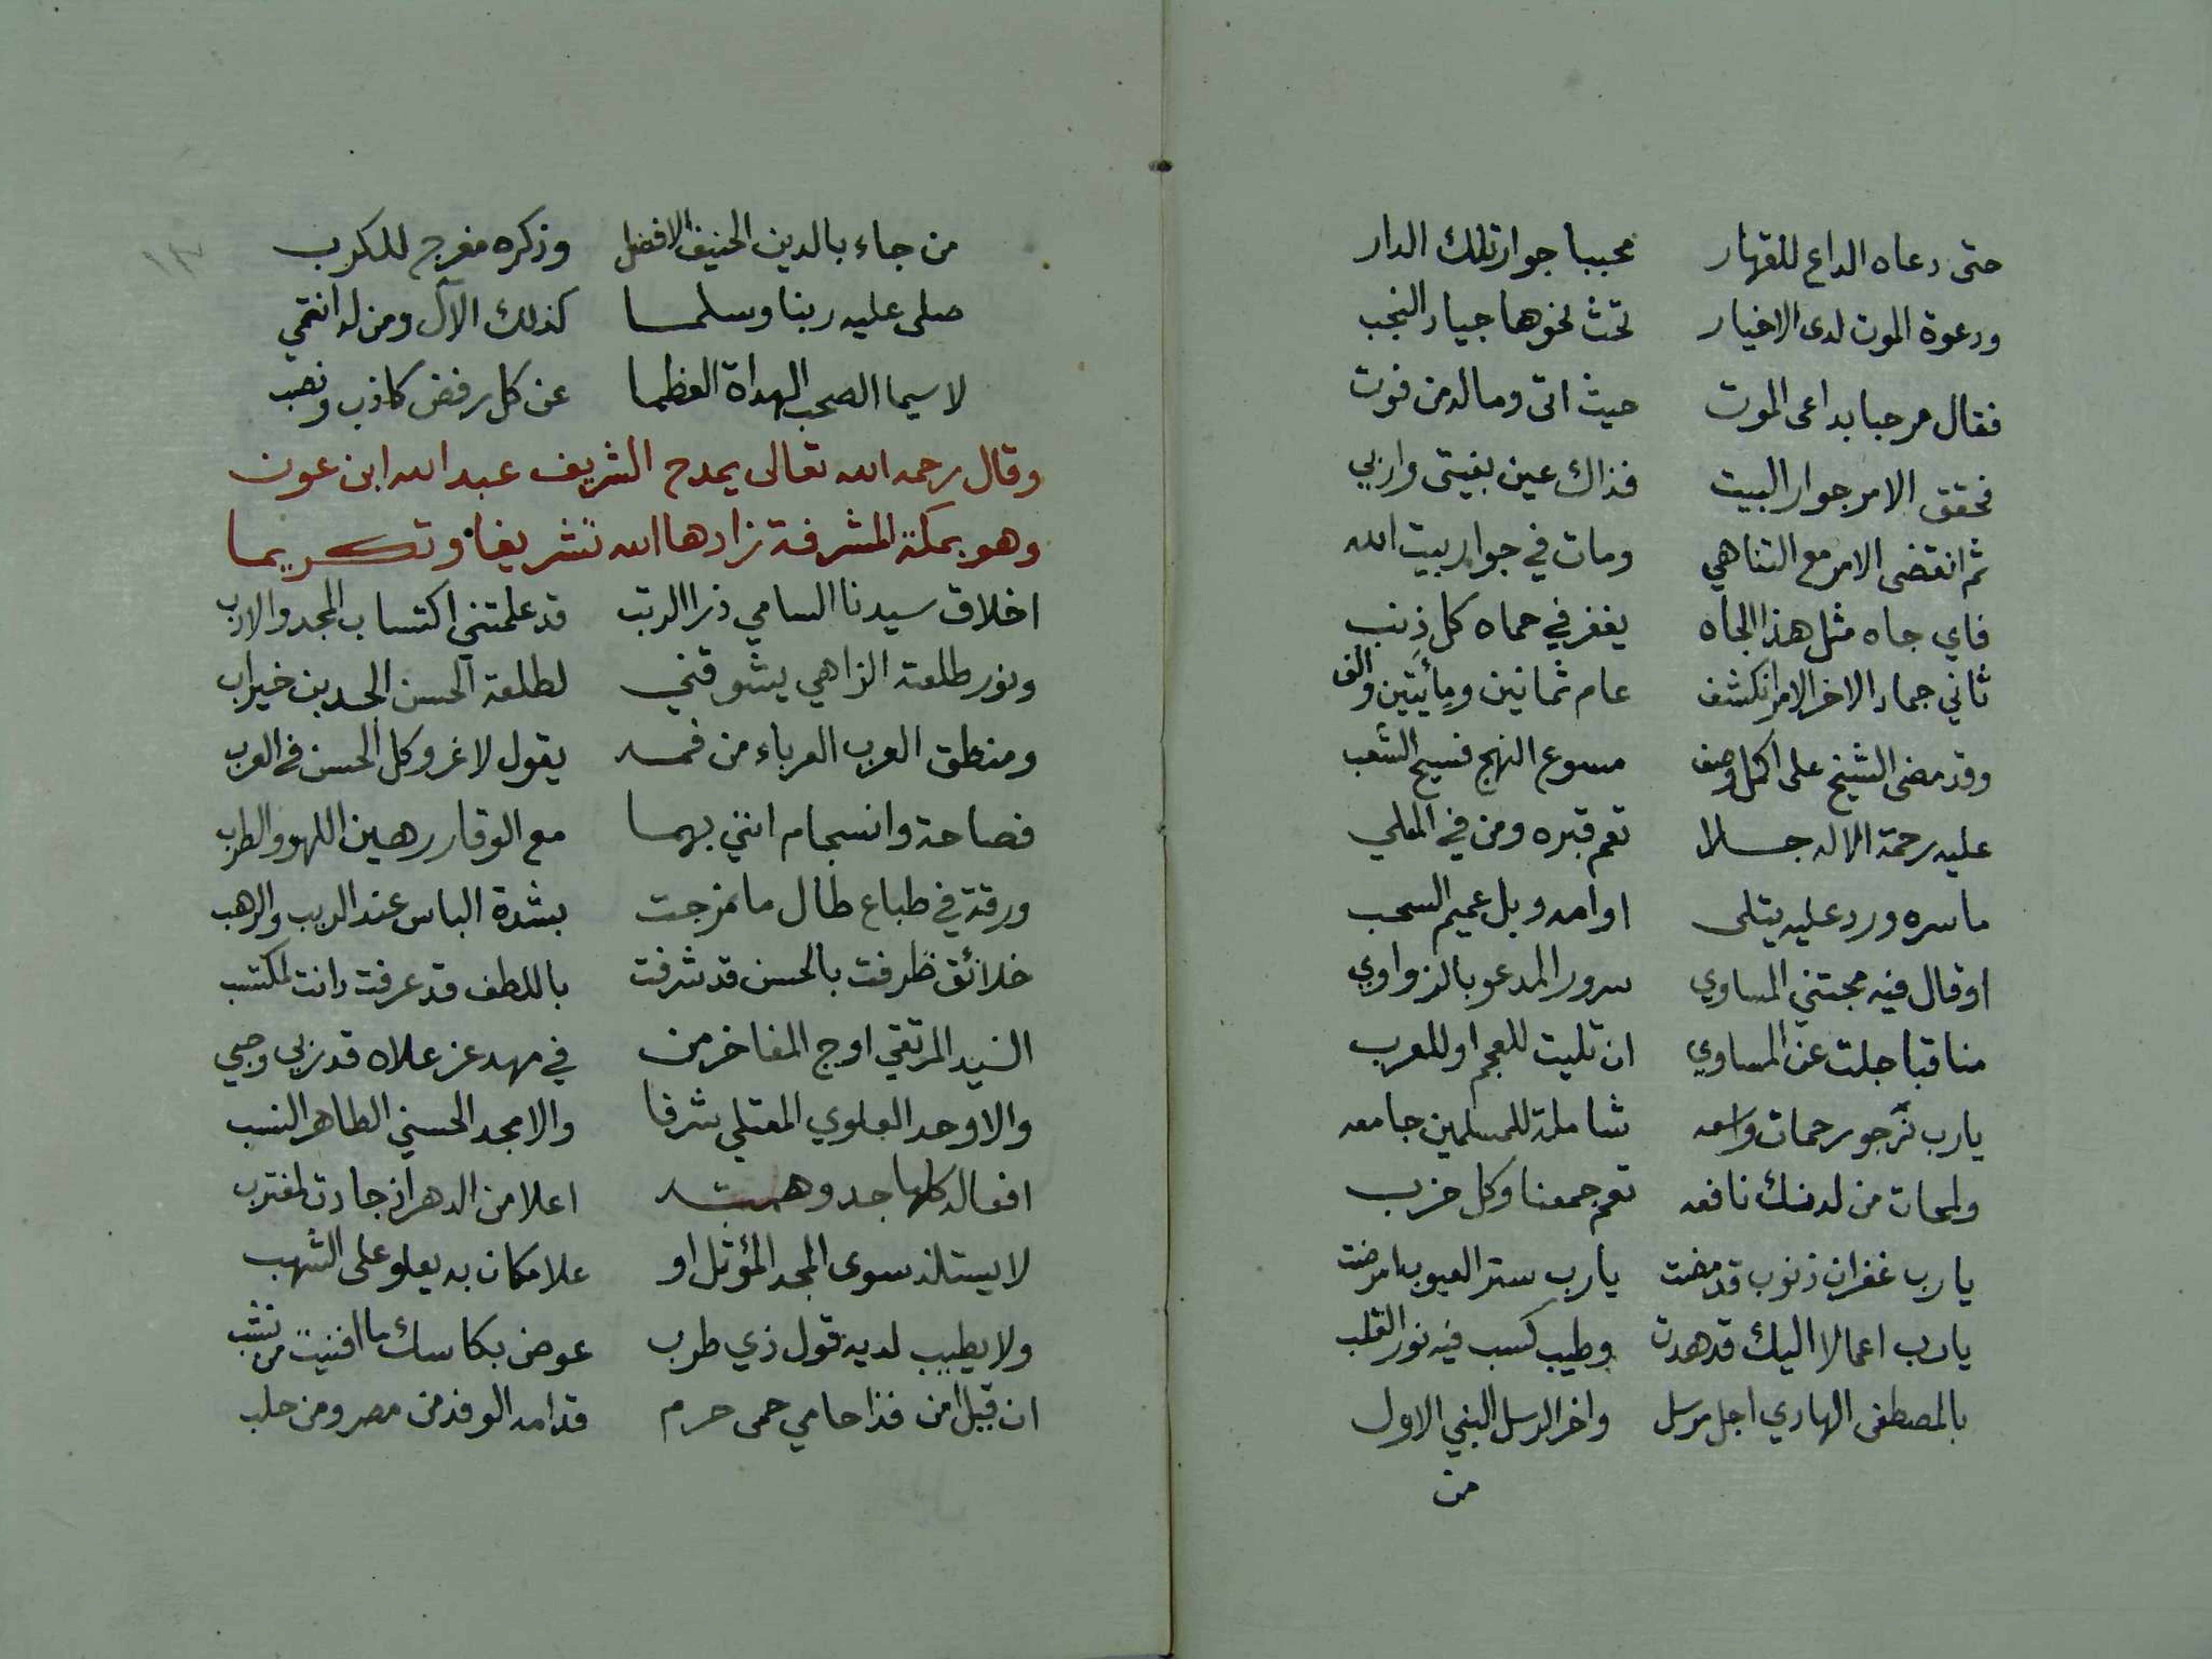 حتى دعاه الداع للقهار محببا جوار تلك الدار
ودعوة الموت لدى الاخيار تحث نحوها جياد النجب
فقال مرحبا بداعى الموت حيث اتى وماله من فوت
فحقق الامر جوار البيت فذاك عين بغيتى واربي
ثم انقضى الامر مع التناهي ومات في جوار بيت الله
فاي جاه مثل هذا الجاه يغفر في حماه كل ذنب
ثاني جماد الاخر الامر انكشف عام ثمانين ومائتين والف
وقد مضى الشيخ على اكمل وصف مسوع النهج فسيح الشعب
عليه رحمة الاله جللا تعم قبره ومن في المعلي
ما سره ورد عليه يتلى او امه وبل عميم السحب
او قال فيه مجتني المساوي سرور المدعو بالزواوي
مناقبا جلت عن المساوي ان تليت للعجم او للعرب
يارب نرجو رحمات واسعه شاملة للمسلمين جامعه
ولمحات من لدنك نافعه تعم جمعنا وكل حزب
يارب غفران ذنوب قد مضت يارب ستر العيوب امرضت
يارب اعمالا اليك قد هدت وطيب كسب فيه نور القلب
بالمصطفى الهادي اجل مرسل واخر الرسل النبي الاول
من
من جاء بالدين الحنيف الافضل وذكره مفرج للكرب
صلى عليه ربنا وسلما كذلك الآل ومن له انتمي
لا سيما الصحب الهداة العظما عن كل رفض كاذب ونصب
وقال رحمه الله تعالى يمدح الشريف عبد الله ابن عون
وهو بمكة المشرفة زادها الله تشريفا وتكريما
اخلاق سيدنا السامي ذرا الرتب قد علمتني اكتساب المجد والادب
ونور طلعته الزاهي يشوقني لطلعة الحسن الجدين خير اب
ومنطق العرب العرباء من فمه يقول لا غرو كل الحسن في العرب
فصاحة وانسجام انني بهما مع الوقار رهين اللهو والطرب
ورقة في طباع طال ما مزجت بشدة الباس عند الريب والرهب
خلائق ظرفت بالحسن قد شرفت باللطف قد عرفت دانت لمكتسب
السيد المرتقي اوج المفاخر من في مهد عز علاه قد ربي وحبي
والاوحد العلوي المعتلي شرفا والامجد الحسني الطاهر النسب
افعاله كلها جد وهمته اعلا من الدهر اذ جادت لمغترب
لا يستلذ سوى المجد المؤثل او علا مكان به يعلو على الشهب
ولا يطيب لديه قول ذي طرب عوض بكاسك ما افنيت من نشب
ان قيل امن فذا حامي حمى حرم قد امه الوفد من مصر ومن حلب
١٣